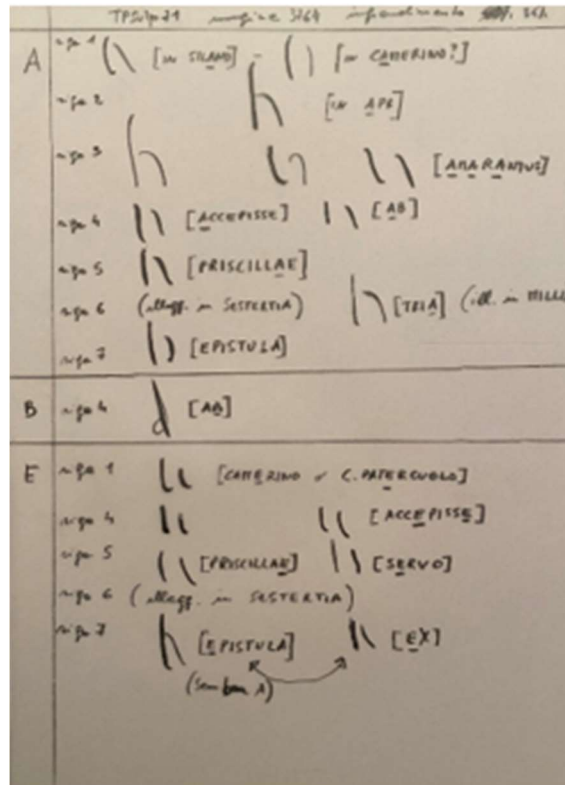 TPSulp 21 immagine 3764 ingrandimento
A riga 1 [IN SILANO] - [IN CAMERINO?]
riga 2 [IN APR]
riga 3 [AMARANTUS]
riga 4 [ACCEPISSE] [AB]
riga 5 [PRISCILLAE]
riga 6 (illegg. in SESTERTIA) [TRIA] (ill. in
riga 7 [EPISTULA]
B riga 4 [AB]
E riga 1 [CAMERINO C. PATERCUOLO]
riga 4 [ACCEPISSE]
riga 5 [PRISCILLAE] [SERVO]
riga 6 (illegg. in SESTERTIA)
riga 7 [EPISTULA] [EX]
(sembra A)